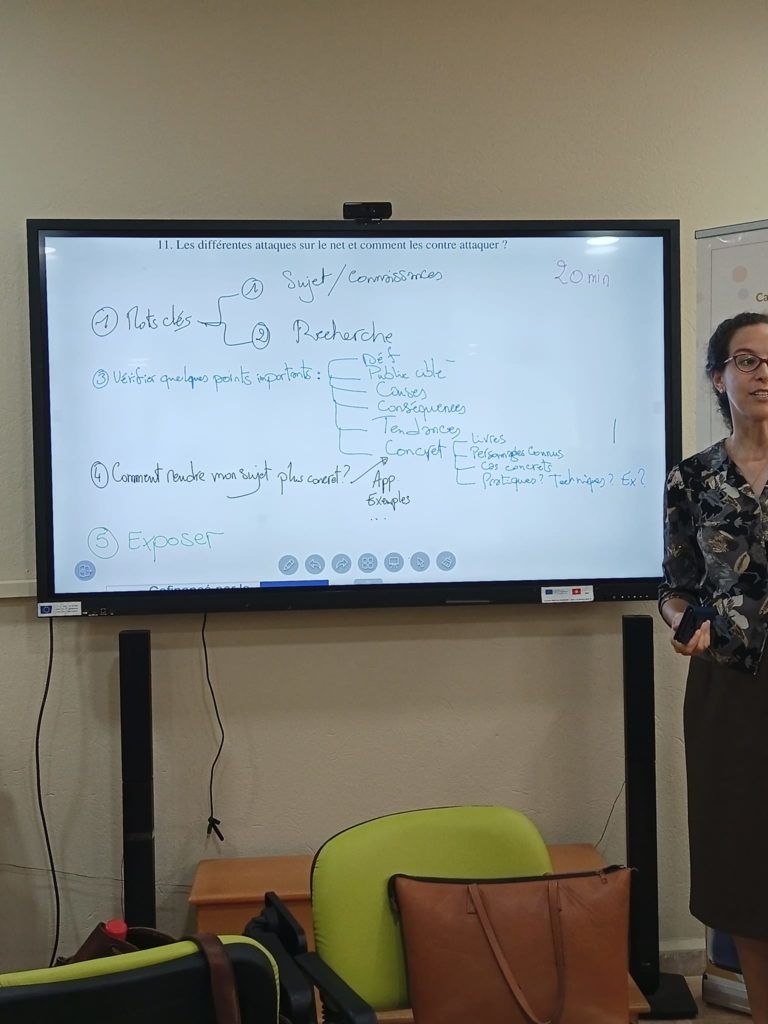 11. Les différentes attaques sur le net et comment les contre attaquer ?
① Sujet/Connaissances
20 min
① Mots clés
② Recherche
③ Vérifier quelques points importants :
Déf
Public cible
Causes
Conséquences
Tendances
Concret
Livres
Personnages connus
Cas concrets
Pratiques? Techniques? Ex?
④ Comment rendre mon sujet plus concret?
App
Exemples
...
⑤ Exposer
Cofinancé par le
Ca